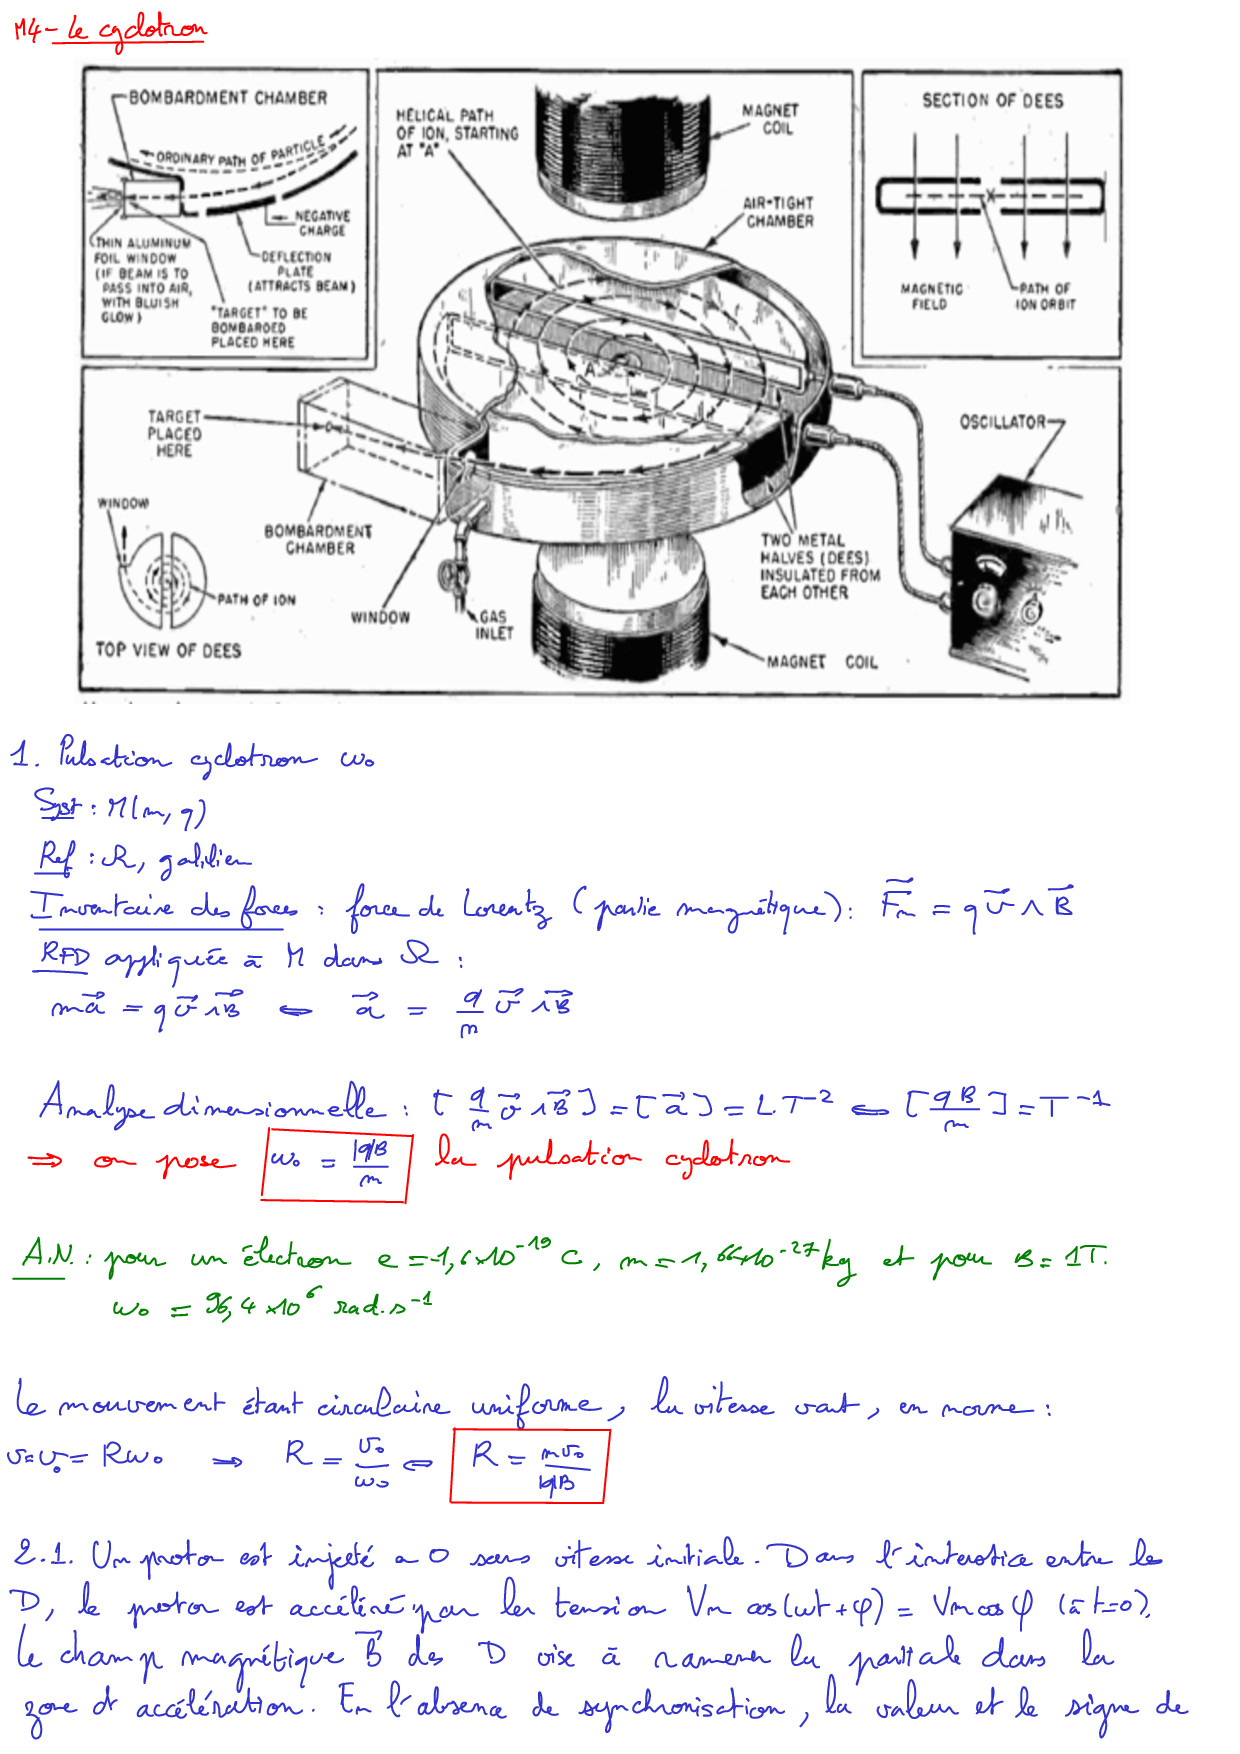 M4- Le cyclotron
BOMBARDMENT CHAMBER
ORDINARY PATH OF PARTICLE
NEGATIVE
CHARGE
THIN ALUMINUM
FOIL WINDOW
(IF BEAM IS TO
PASS INTO AIR,
WITH BLUISH
GLOW)
DEFLECTION
PLATE
(ATTRACTS BEAM)
"TARGET" TO BE
BOMBAROED
PLACED HERE
HELICAL PATH
OF ION, STARTING
AT "A"
MAGNET
COIL
AIR-TIGHT
CHAMBER
A
SECTION OF DEES
MAGNETIC
FIELD
PATH OF
ION ORBIT
TARGET
PLACED
HERE
OSCILLATOR
WINDOW
BOMBARDMENT
CHAMBER
PATH OF ION
TOP VIEW OF DEES
WINDOW
GAS
INLET
TWO METAL
HALVES (DEES)
INSULATED FROM
EACH OTHER
MAGNET COIL
1. Pulsation cyclotron ω₀
Syst : M(m, q)
Ref : R, galiléen
Inventaire des forces : force de Lorentz (partie magnétique) : F⃗m = q v⃗ ∧ B⃗
RFD appliquée à M dans R :
m a⃗ = q v⃗ ∧ B⃗ ⇔ a⃗ = q/m v⃗ ∧ B⃗
Analyse dimensionnelle : [q/m v⃗ ∧ B⃗] = [a⃗] = L T⁻² ⇔ [qB/m] = T⁻¹
⇒ on pose ω₀ = |q|B/m la pulsation cyclotron
A.N. : pour un électron e = -1,6×10⁻¹⁹ C, m = 1,66×10⁻²⁷ kg et pour B = 1T.
ω₀ = 96,4 ×10⁶ rad.s⁻¹
Le mouvement étant circulaire uniforme, la vitesse vaut, en norme :
v = v₀ = Rω₀ ⇒ R = v₀/ω₀ ⇔ R = mv₀/|q|B
2.1. Un proton est injecté à O sans vitesse initiale. Dans l'interstice entre les
D, le proton est accéléré par la tension Vm cos(ωt+φ) = Vm cos φ (à t=0).
Le champ magnétique B⃗ des D vise à ramener la particule dans la
zone d'accélération. En l'absence de synchronisation, la valeur et le signe de